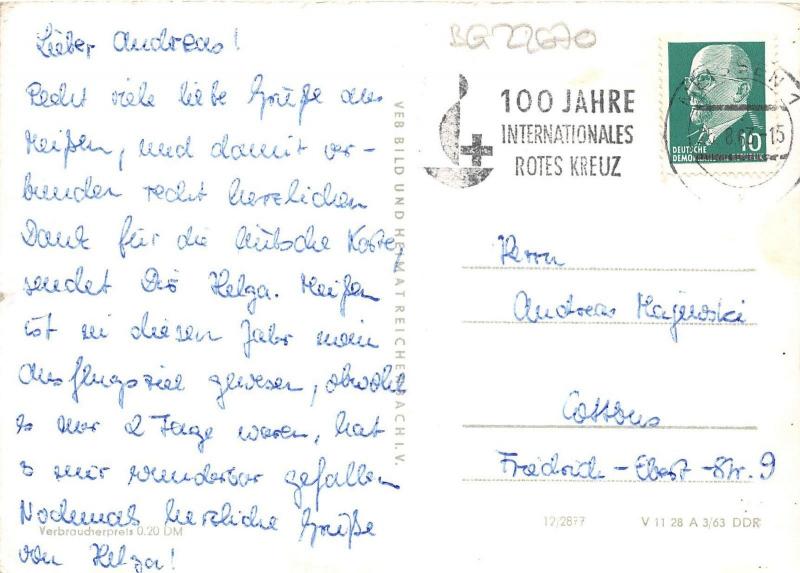 Lieber Andreas!
Recht viele liebe Grüße aus
Meißen, und damit ver-
bunden recht herzlichen
Dank für die hübsche Karte,
sendet Dir Helga. Meißen
ist in diesem Jahr mein
Ausflugsziel gewesen, obwohl
es nur 2 Tage waren, hat
es mir wunderbar gefallen
Nochmals herzliche Grüße
von Helga!
Verbraucherpreis 0.20 DM
VEB BILD UND HEIMAT REICHENBACH I.V.
BG 22670
100 JAHRE
INTERNATIONALES
ROTES KREUZ
DEUTSCHE
10
Herrn
Andreas Majewski
Cottbus
Friedrich-Ebert-Str. 9
12/2877
V 11 28 A 3/63 DDR